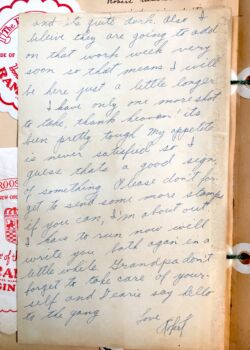 and its quite dark. Also I
believe they are going to add
on that work week very
soon so that means I will
be here just a little longer.
I have only one more shot
to take, thank heaven! its
been pretty tough. My appetite
is never satisfied so I
guess thats a good sign,
of something. Please don't for-
get to send some more stamps
if you can, I'm about out.
I have to run now will
write you both again in a
little while. Grandpa don't
forget to take care of your-
self and say hello
to the gang
Love
Robert